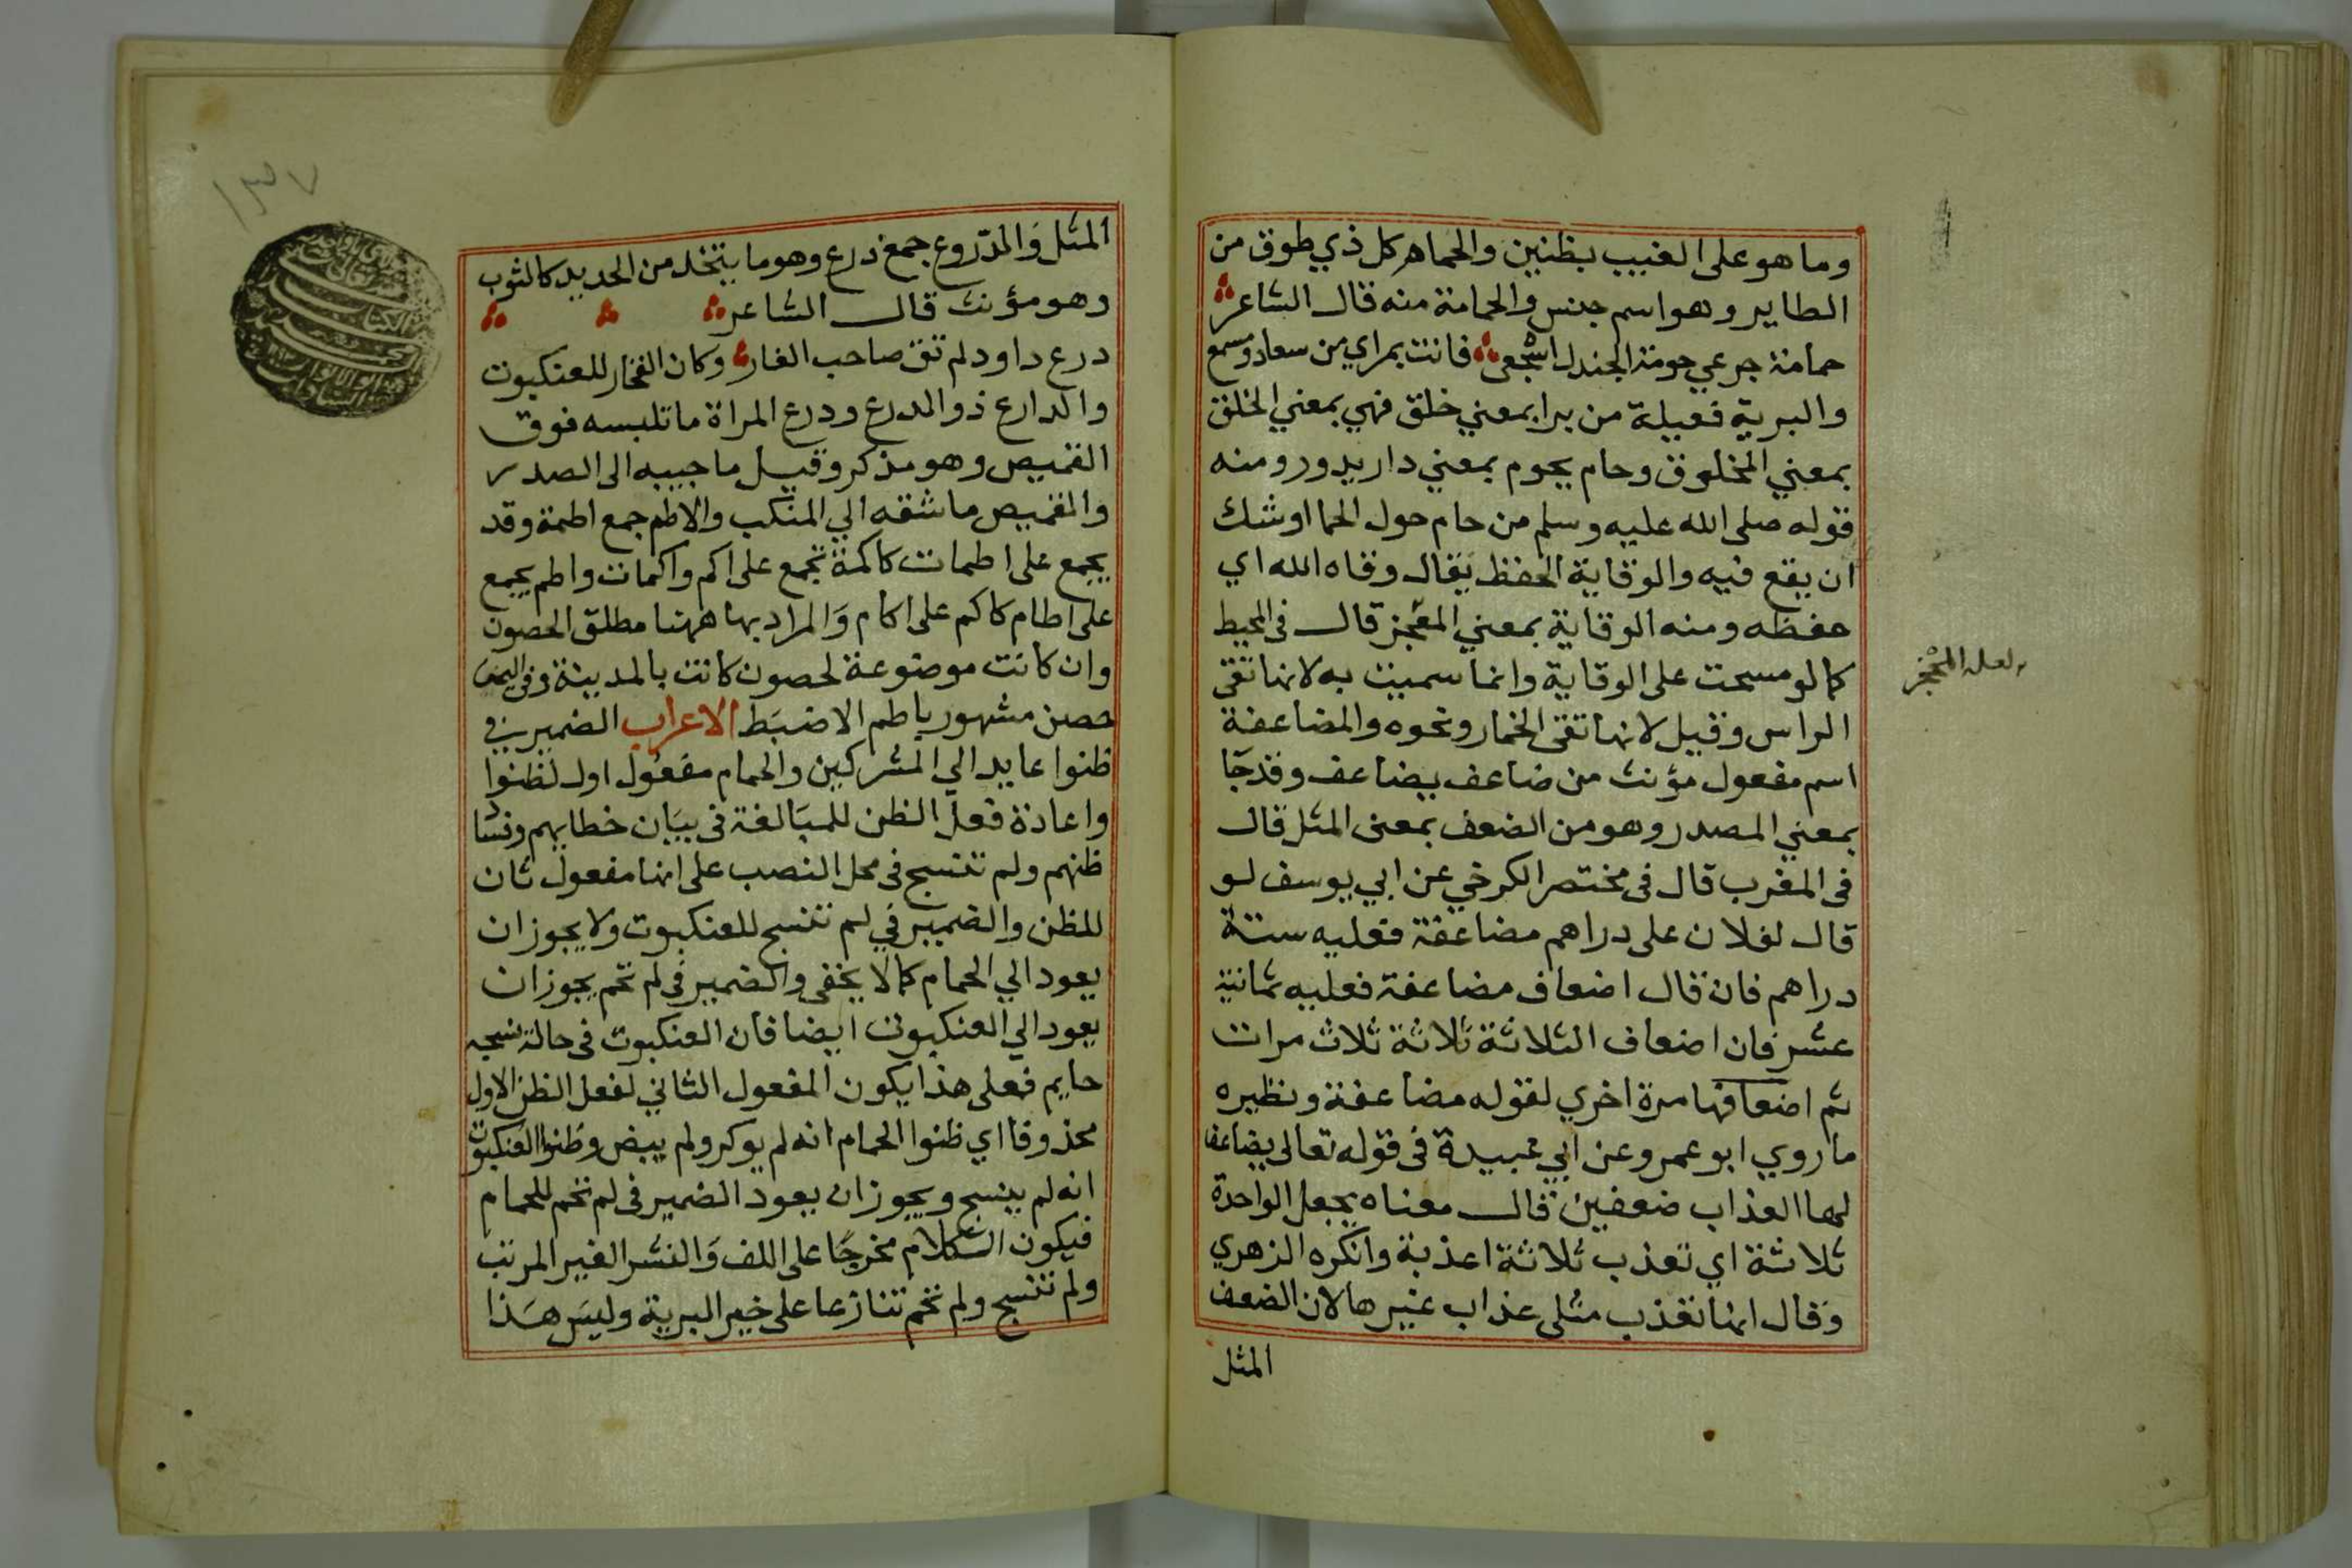 وما هو على الغيب بظنين والحمام كل ذي طوق من
الطاير وهو اسم جنس والحمامة منه قال الشاعر
حمامة جرعي حومة الجندل اسجعي فانت بمراي من سعاد ومسمع
والبرية فعيلة من برا بمعني خلق فهي بمعني الخلق
بمعني المخلوق وحام يحوم بمعني دار يدور ومنه
قوله صلى الله عليه وسلم من حام حول الحما اوشك
ان يقع فيه والوقاية الحفظ يقال وقاه الله اي
حفظه ومنه الوقاية بمعني المعجز قال في المحيط
كما لو مسحت على الوقاية وانما سميت به لانها تقي
الراس وقيل لانها تقي الخمار ونحوه والمضاعفة
اسم مفعول مؤنث من ضاعف يضاعف وقد جا
بمعني المصدر وهو من الضعف بمعنى المثل قال
في المغرب قال في مختصر الكرخي عن ابي يوسف لو
قال لفلان على دراهم مضاعفة فعليه ستة
دراهم فان قال اضعاف مضاعفة فعليه ثمانية
عشر فان اضعاف الثلاثة ثلاثة ثلاث مرات
ثم اضعافها مرة اخري لقوله مضاعفة ونظيره
ما روي ابو عمرو عن ابي عبيدة في قوله تعالى يضاعف
لها العذاب ضعفين قال معناه يجعل الواحدة
ثلاثة اي تعذب ثلاثة اعذبة وانكره الزهري
وقال انها تعذب مثلى عذاب غيرها لان الضعف
المثل
لعله المحجز
١٣٧
المثل والدروع جمع درع وهو ما يتخذ من الحديد كالثوب
وهو مؤنث قال الشاعر
درع داود لم تق صاحب الغار وكان الفخار للعنكبوت
والدارع ذو الدرع ودرع المراة ما تلبسه فوق
القميص وهو مذكر وقيل ما جيبه الى الصدر
والقميص ما شقه الي المنكب والاطم جمع اطمة وقد
يجمع على اطمات كاكمة تجمع على اكم واكمات واطم يجمع
على اطام كاكم على اكام والمراد بها ههنا مطلق الحصون
وان كانت موضوعة لحصون كانت بالمدينة وفي اليمن
حصن مشهور باطم الاضبط الاعراب الضمير في
ظنوا عايد الي المشركين والحمام مفعول اول لظنوا
واعادة فعل الظن للمبالغة في بيان خطايهم ونشا
ظنهم ولم تنسج في محل النصب على انها مفعول ثان
للظن والضمير في لم تنسج للعنكبوت ولا يجوز ان
يعود الي الحمام كما لا يخفى والضمير في لم تحم يجوز ان
يعود الي العنكبوت ايضا فان العنكبوت في حالة نسجه
حايم فعلى هذا يكون المفعول الثاني لفعل الظن الاول
محذوفا اي ظنوا الحمام انه لم يوكر ولم يبض وظنوا العنكبوت
انه لم ينسج ويجوز ان يعود الضمير في لم تحم للحمام
فيكون الكلام مخرجا على اللف والنشر الغير المرتب
ولم تنسج ولم تحم تنازعا على خير البرية وليس هذا